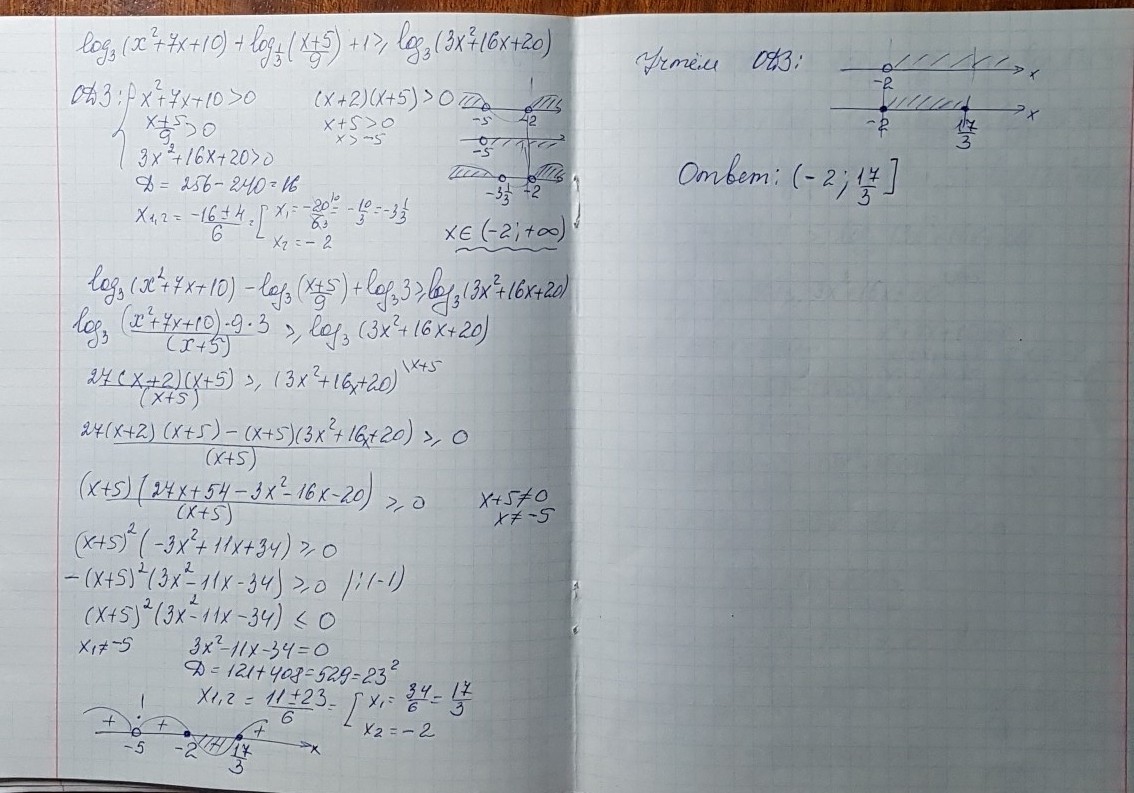 log₃(x²+7x+10) + log_{1/3}((x+5)/9) + 1 ≥ log₃(3x²+16x+20)
ОДЗ: { x²+7x+10>0 (x+2)(x+5)>0 -5 -2
(x+5)/9>0 x+5>0
x>-5 -5
3x²+16x+20>0
D = 256-240=16 -3 1/3 -2
x₁,₂ = (-16±4)/6 = [ x₁= -20/6 = -10/3 = -3 1/3
x₂ = -2 x∈(-2;+∞)
log₃(x²+7x+10) - log₃((x+5)/9) + log₃3 ≥ log₃(3x²+16x+20)
log₃ ((x²+7x+10)·9·3)/(x+5) ≥ log₃(3x²+16x+20)
27(x+2)(x+5)/(x+5) ≥ (3x²+16x+20) \x+5
(27(x+2)(x+5)-(x+5)(3x²+16x+20))/(x+5) ≥ 0
(x+5)(27x+54-3x²-16x-20)/(x+5) ≥ 0 x+5≠0
x≠-5
(x+5)²(-3x²+11x+34) ≥ 0
-(x+5)²(3x²-11x-34) ≥ 0 |:(-1)
(x+5)²(3x²-11x-34) ≤ 0
x₁≠-5 3x²-11x-34=0
D=121+408=529=23²
x₁,₂ = (11±23)/6 = [ x₁= 34/6 = 17/3
x₂ = -2
+ + - +
-5 -2 17/3 x
Учтём ОДЗ:
-2 x
-2 17/3 x
Ответ: (-2; 17/3]